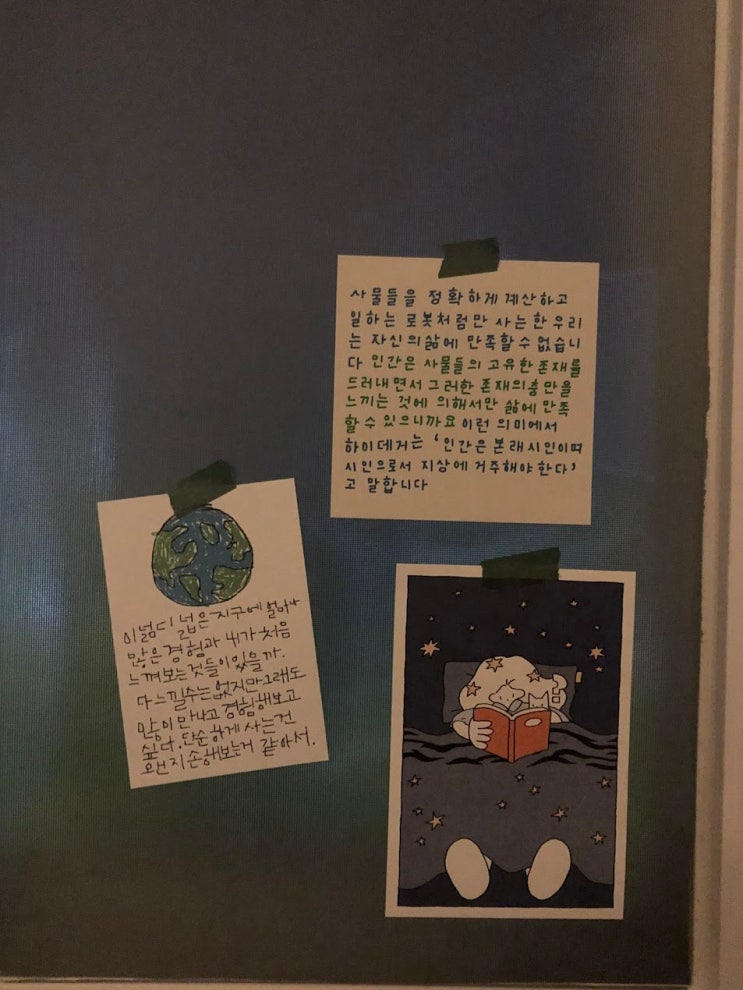 사물들을 정확하게 계산하고
일하는 로봇처럼만 사는 한 우리
는 자신의 삶에 만족할 수 없습니
다 인간은 사물들의 고유한 존재를
드러내면서 그러한 존재의 충만을
느끼는 것에 의해서만 삶에 만족
할 수 있으니까요 이런 의미에서
하이데거는 '인간은 본래 시인이며
시인으로서 지상에 거주해야 한다'
고 말합니다
이 넓디 넓은 지구에 얼마나
많은 경험과 내가 처음
느껴보는 것들이 있을까.
다 느낄수는 없지만 그래도
많이 만나고 경험해보고
싶다. 단순하게 사는건
왠지 손해보는거 같아서.